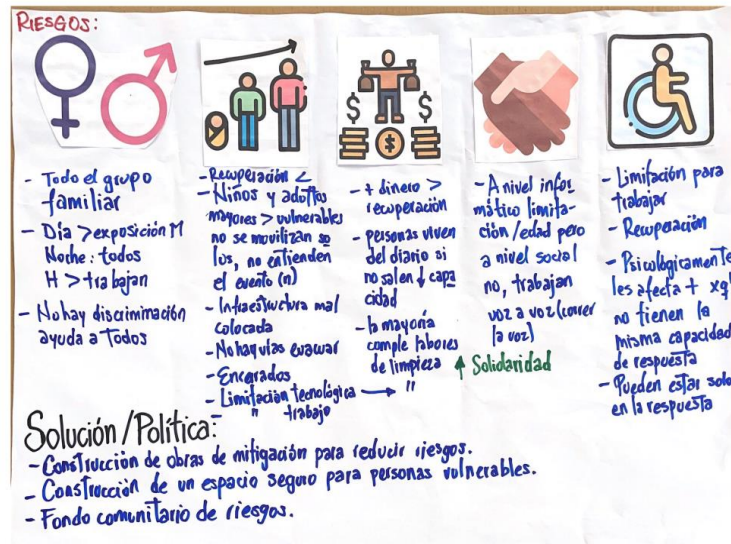 RIESGOS:
- Todo el grupo
familiar
- Día > exposición M
Noche: todos
H > trabajan
- No hay discriminación
ayuda a Todos
- Recuperación <
- Niños y adultos
mayores > vulnerables
no se movilizan so
los, no entienden
el evento (n)
- Infraestructura mal
colocada
- No hay vías evacuar
- Encerados
- Limitación tecnológica →
- " trabajo
$ $
$
- + dinero >
recuperación
- personas viven
del diario si
no salen ↓ capa
cidad
- la mayoría
cumple labores
de limpieza
"
- A nivel infor
mático limita-
ción/edad pero
a nivel social
no, trabajan
voz a voz (correr
la voz)
↑ Solidaridad
- Limitación para
trabajar
- Recuperación
- Psicológicamente
les afecta + xq'
no tienen la
misma capacidad
de respuesta
- Pueden estar solo
en la respuesta
Solución / Política:
- Construcción de obras de mitigación para reducir riesgos.
- Construcción de un espacio seguro para personas vulnerables.
- Fondo comunitario de riesgos.